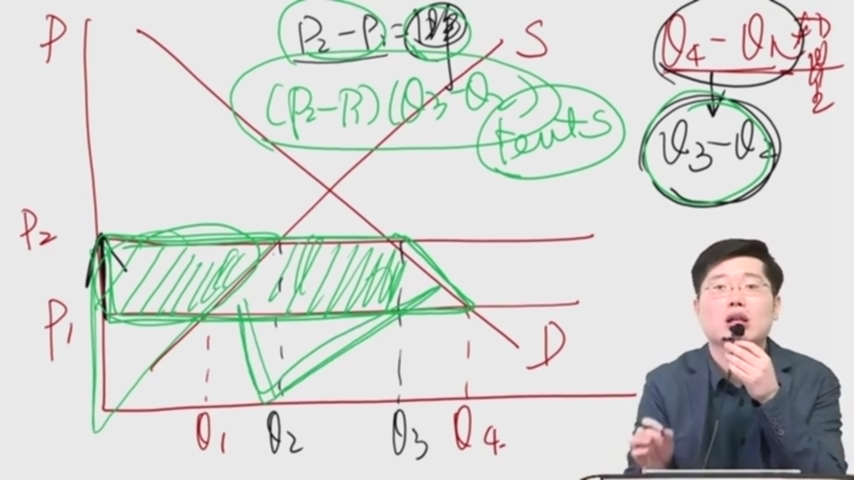 P
P₂ - P₁ =
S
(P₂-P₁)(Q₃-Q₂)
rents
Q₄ - Q₁
Q₃-Q₂
P₂
P₁
D
Q₁ Q₂ Q₃ Q₄